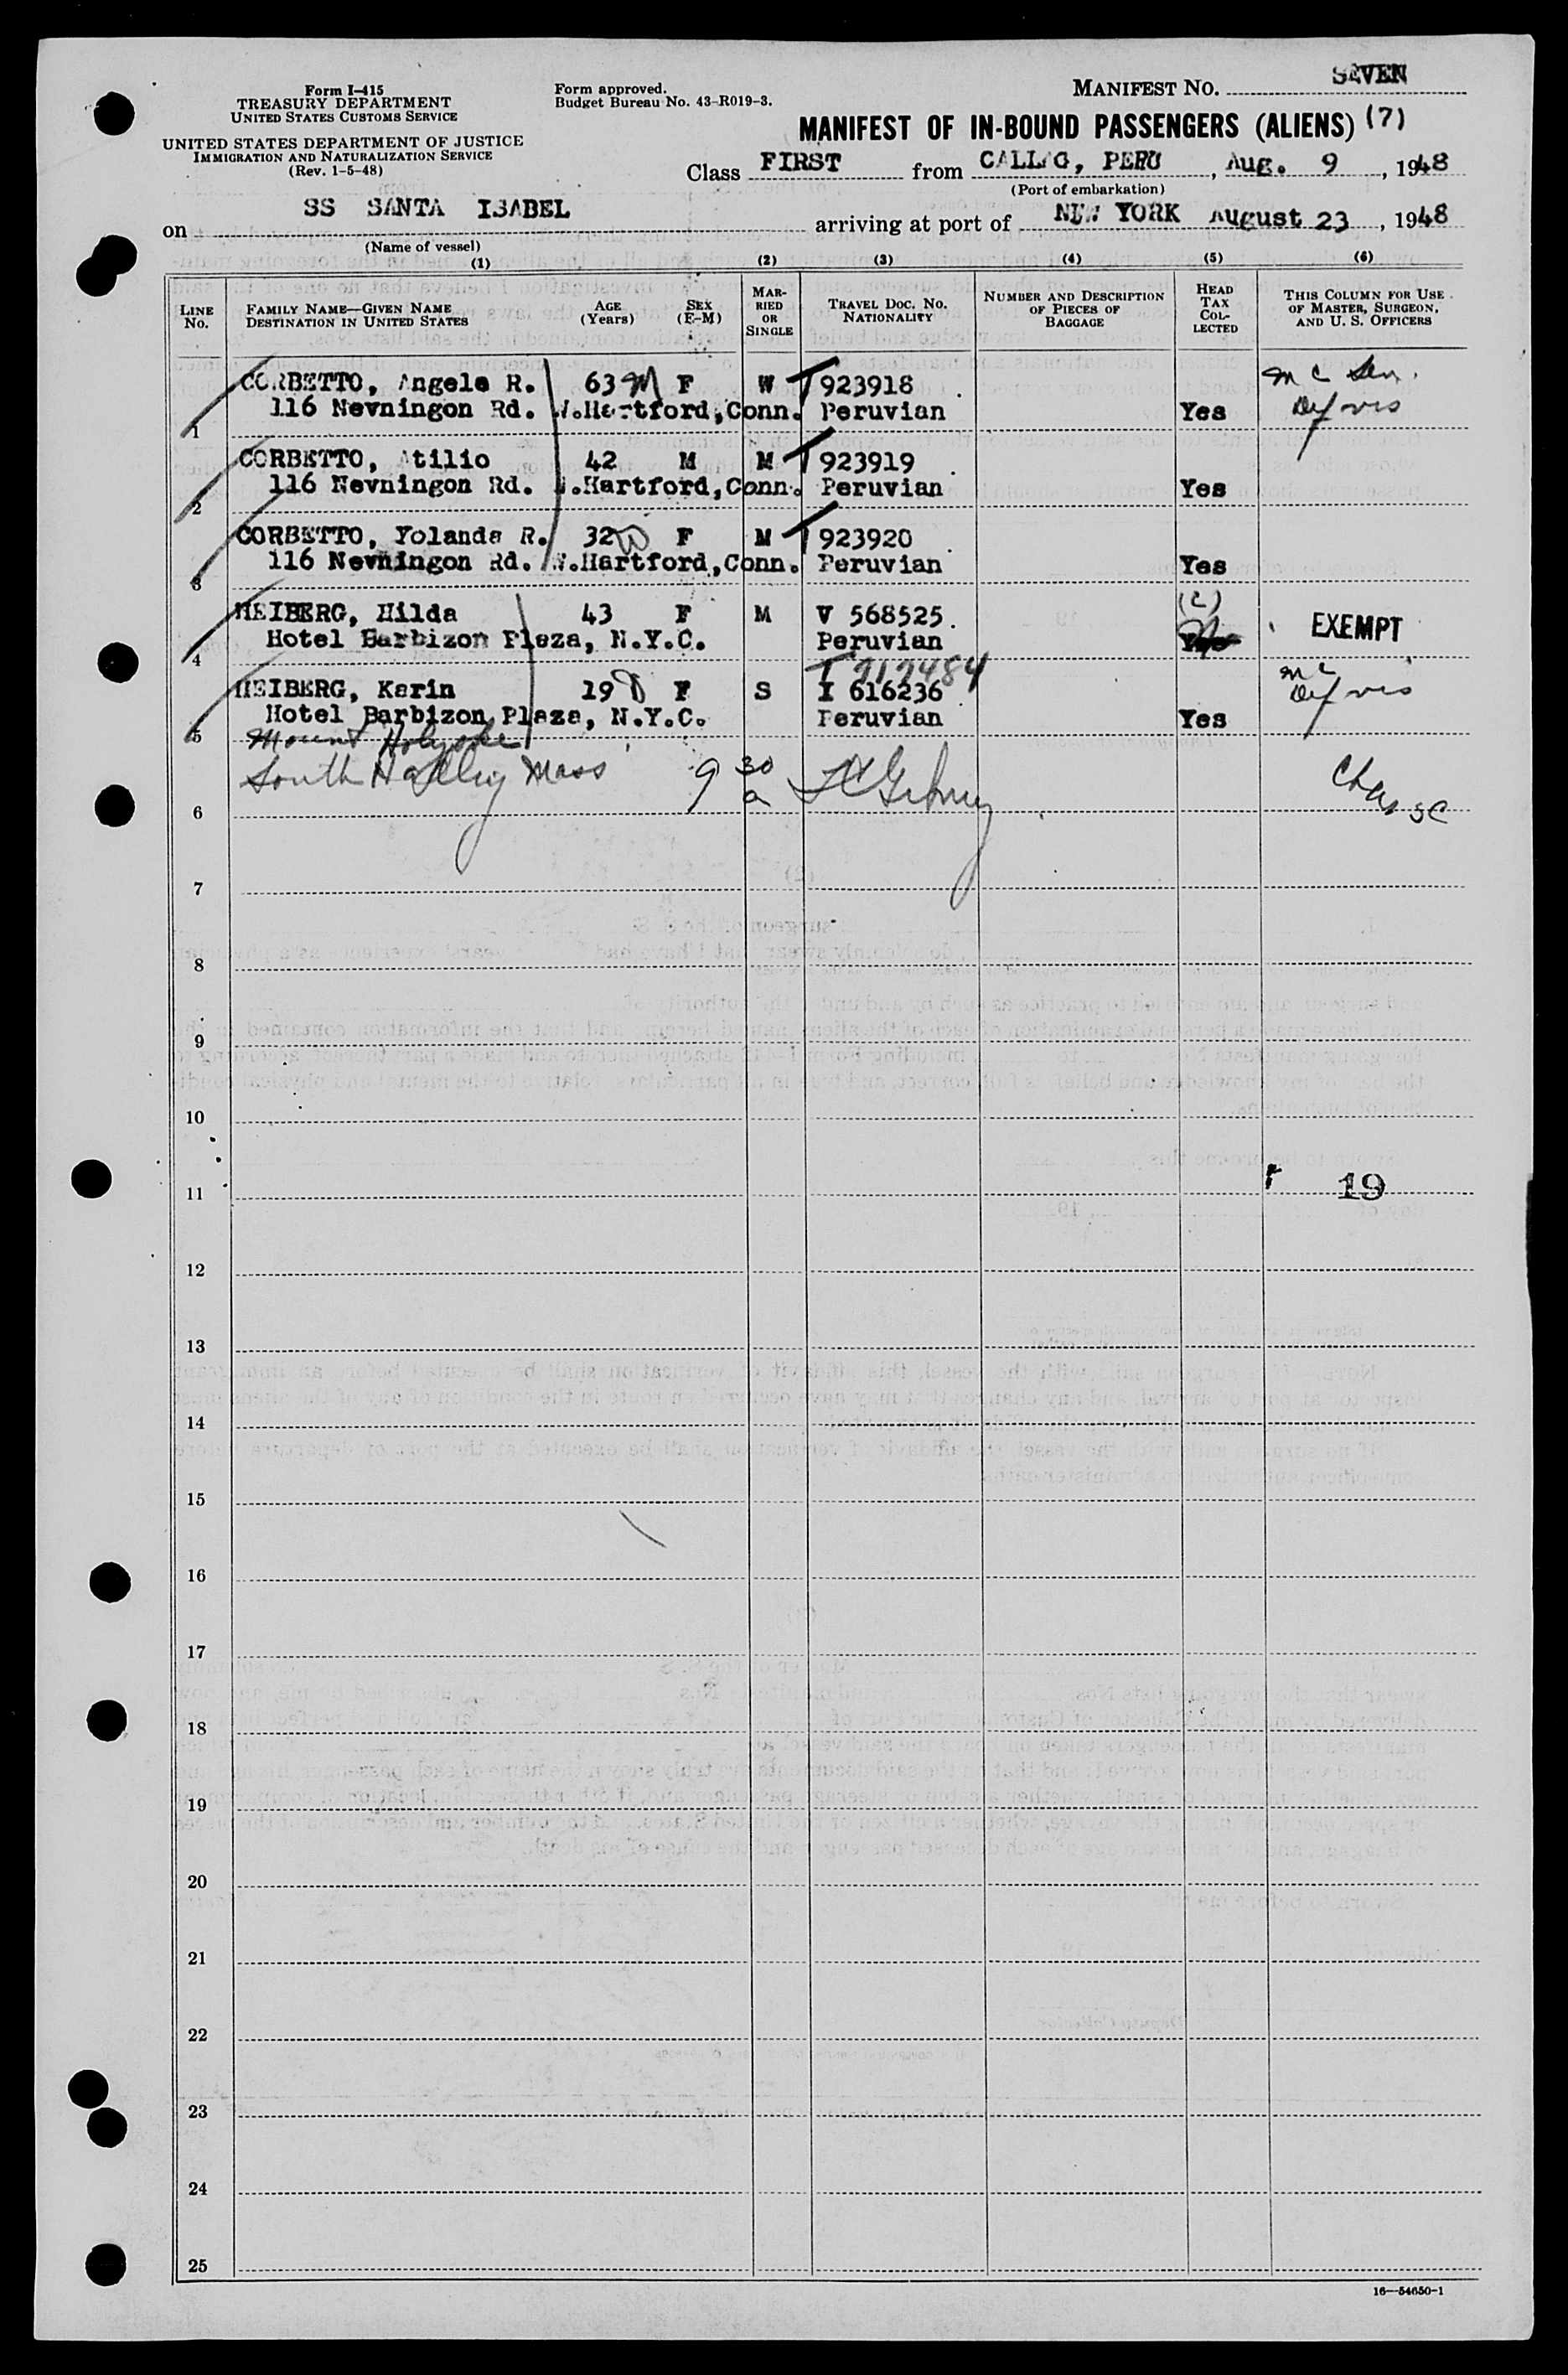 Form I-415
TREASURY DEPARTMENT
UNITED STATES CUSTOMS SERVICE
UNITED STATES DEPARTMENT OF JUSTICE
IMMIGRATION AND NATURALIZATION SERVICE
(Rev. 1-5-48)
Form approved.
Budget Bureau No. 43-R019-3.
MANIFEST NO. SEVEN
MANIFEST OF IN-BOUND PASSENGERS (ALIENS) (7)
Class FIRST from CALLAO, PERU, Aug. 9, 1948
(Port of embarkation)
on SS SANTA ISABEL arriving at port of NEW YORK August 23, 1948
(Name of vessel)
(1) (2) (3) (4) (5) (6)
LINE No. FAMILY NAME—GIVEN NAME DESTINATION IN UNITED STATES AGE (Years) SEX (F-M) MARRIED OR SINGLE TRAVEL DOC. NO. NATIONALITY NUMBER AND DESCRIPTION OF PIECES OF BAGGAGE HEAD TAX COLLECTED THIS COLUMN FOR USE OF MASTER, SURGEON, AND U. S. OFFICERS
CORBETTO, Angela R. 63 M F W T 923918
1 116 Nevningon Rd. W.Hartford, Conn. Peruvian Yes
CORBETTO, Atilio 42 M M T 923919
2 116 Nevningon Rd. W.Hartford, Conn. Peruvian Yes
CORBETTO, Yolanda R. 32 F M T 923920
3 116 Nevningon Rd. W.Hartford, Conn. Peruvian Yes
HEIBERG, Hilda 43 F M V 568525 (C) EXEMPT
4 Hotel Barbizon Plaza, N.Y.C. Peruvian
T 919484
HEIBERG, Karin 19 F S I 616236
5 Hotel Barbizon Plaza, N.Y.C. Peruvian Yes
Mount Holyoke
South Hadley Mass 9 30 a
6
7
8
9
10
11 19
12
13
14
15
16
17
18
19
20
21
22
23
24
25
16—54650-1